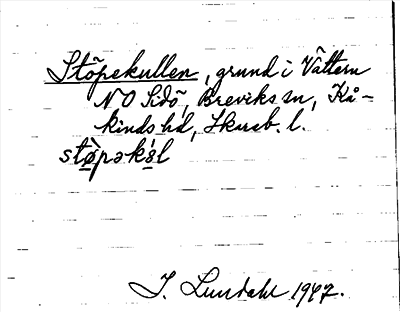 Stöpekullen, grund i Vättern
N O Sidö, Breviks sn, Kå-
kinds hd, Skarab. l.
stø̀pəkø̀l
I. Lundahl 1947.